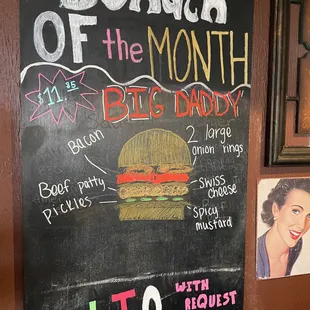 OF the MONTH
$11.35
BIG DADDY
Bacon
2 large
onion rings
Beef patty
Swiss
cheese
Pickles
Spicy
mustard
WITH
REQUEST